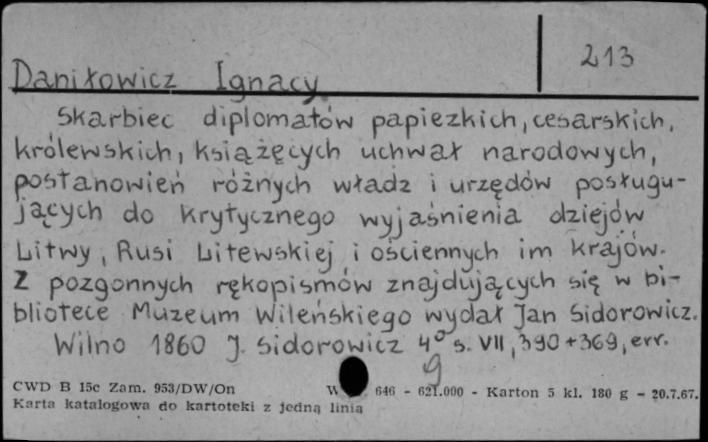 213
Daniłowicz Ignacy
Skarbiec diplomatów papiezkich, cesarskich,
królewskich, książęcych uchwał narodowych,
postanowień różnych władz i urzędów posługu-
jących do krytycznego wyjaśnienia dziejów
Litwy, Rusi Litewskiej i ościennych im krajów.
Z pozgonnych rękopismów znajdujących się w bi-
bliotece Muzeum Wileńskiego wydał Jan Sidorowicz.
Wilno 1860 J. Sidorowicz 4° s. VII, 390 + 369, err.
g
CWD B 15c Zam. 953/DW/On 646 - 621.000 - Karton 5 kl. 180 g - 20.7.67.
Karta katalogowa do kartoteki z jedną linią